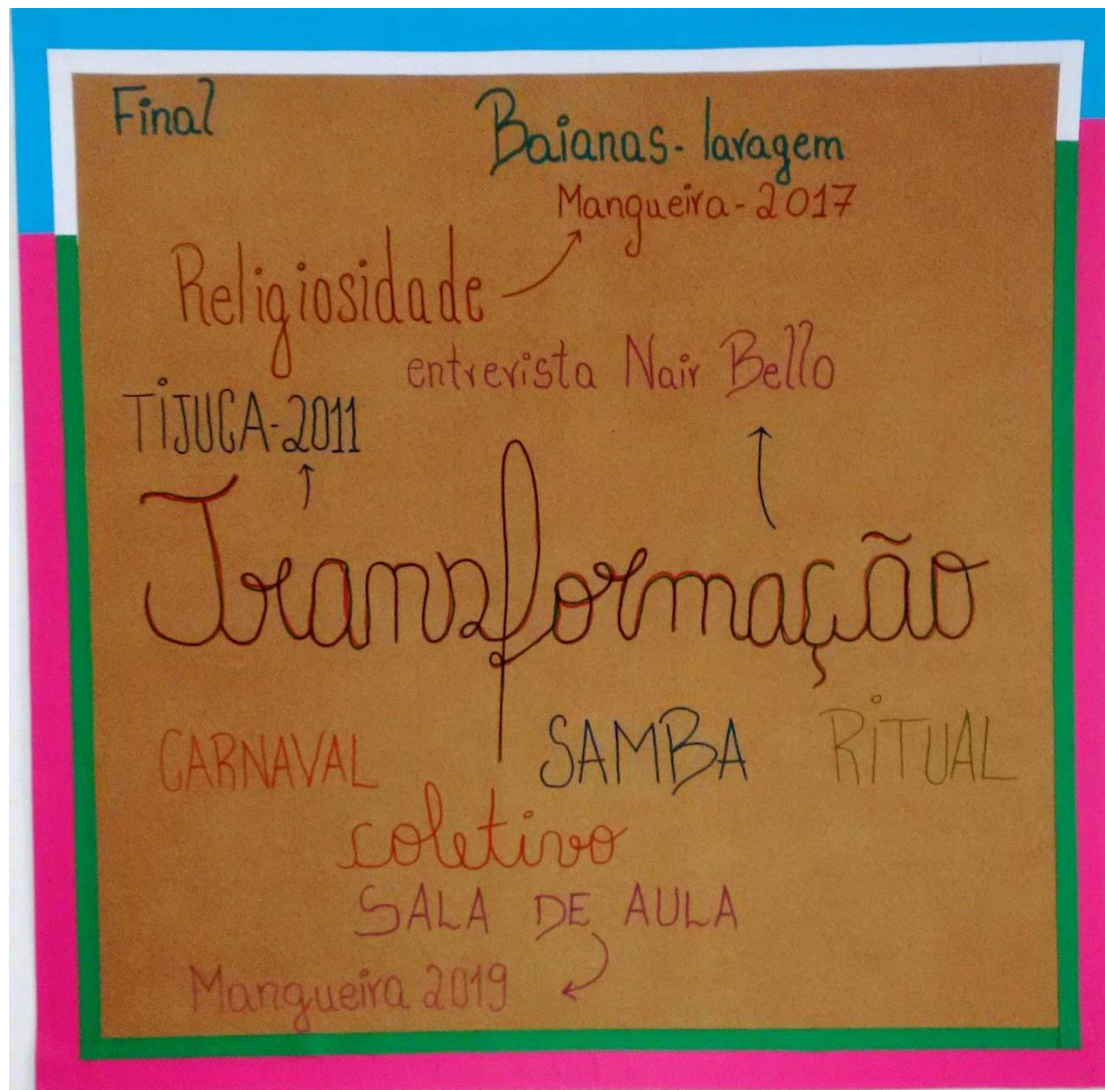 Final
Baianas- lavagem
Mangueira-2017
Religiosidade
entrevista Nair Bello
TiJUCA-2011
Transformação
CARNAVAL SAMBA RiTUAL
coletivo
SALA DE AULA
Mangueira 2019